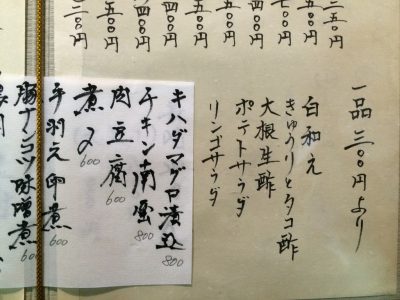 一品 三〇〇円より
白和え
きゅうりとタコ酢
大根生酢
ポテトサラダ
リンゴサラダ
三五〇円
〇〇円
七〇〇円
五〇〇円
五〇〇円
四〇〇円
四〇〇円
三〇円
キハダマグロ漬込 800
チキン南蛮 800
肉豆腐 600
煮〆 600
手羽元卵煮 600
豚ナンコツ味噌煮 600